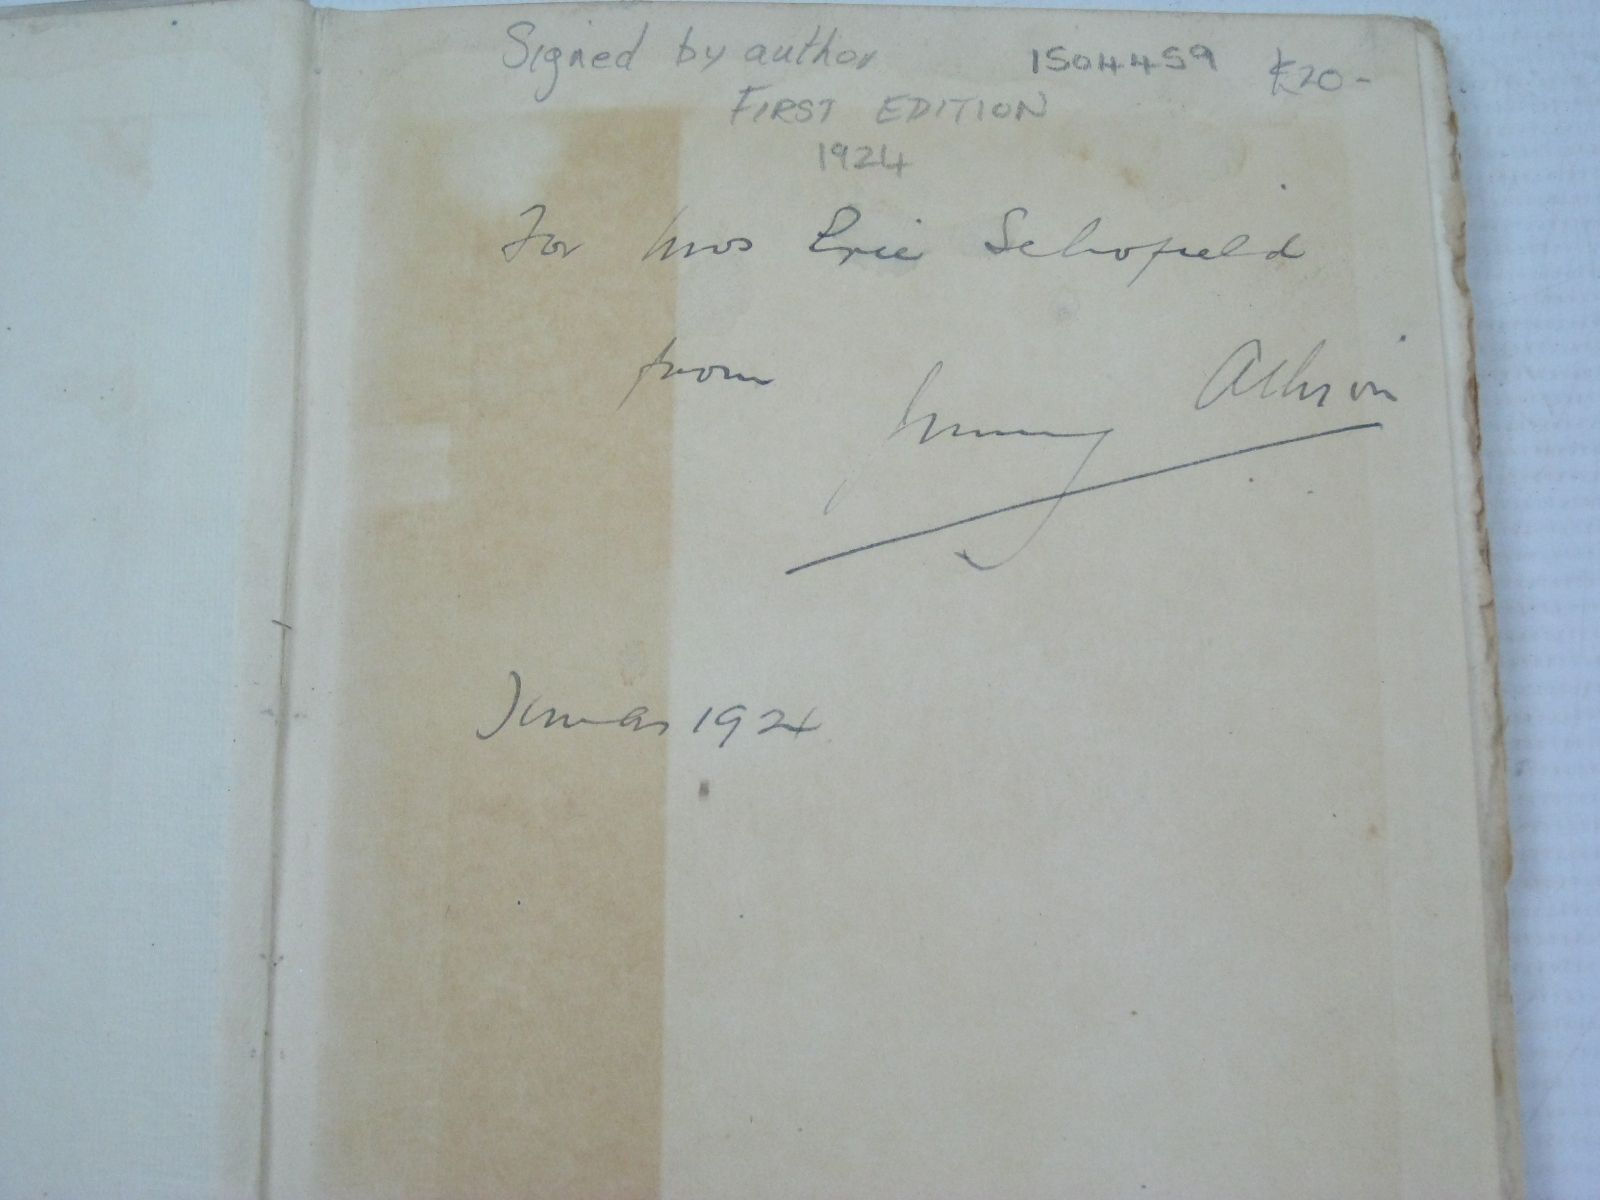 Signed by author 1504459 £20-
FIRST EDITION
1924
For Mrs Eric Schofield
from
1924